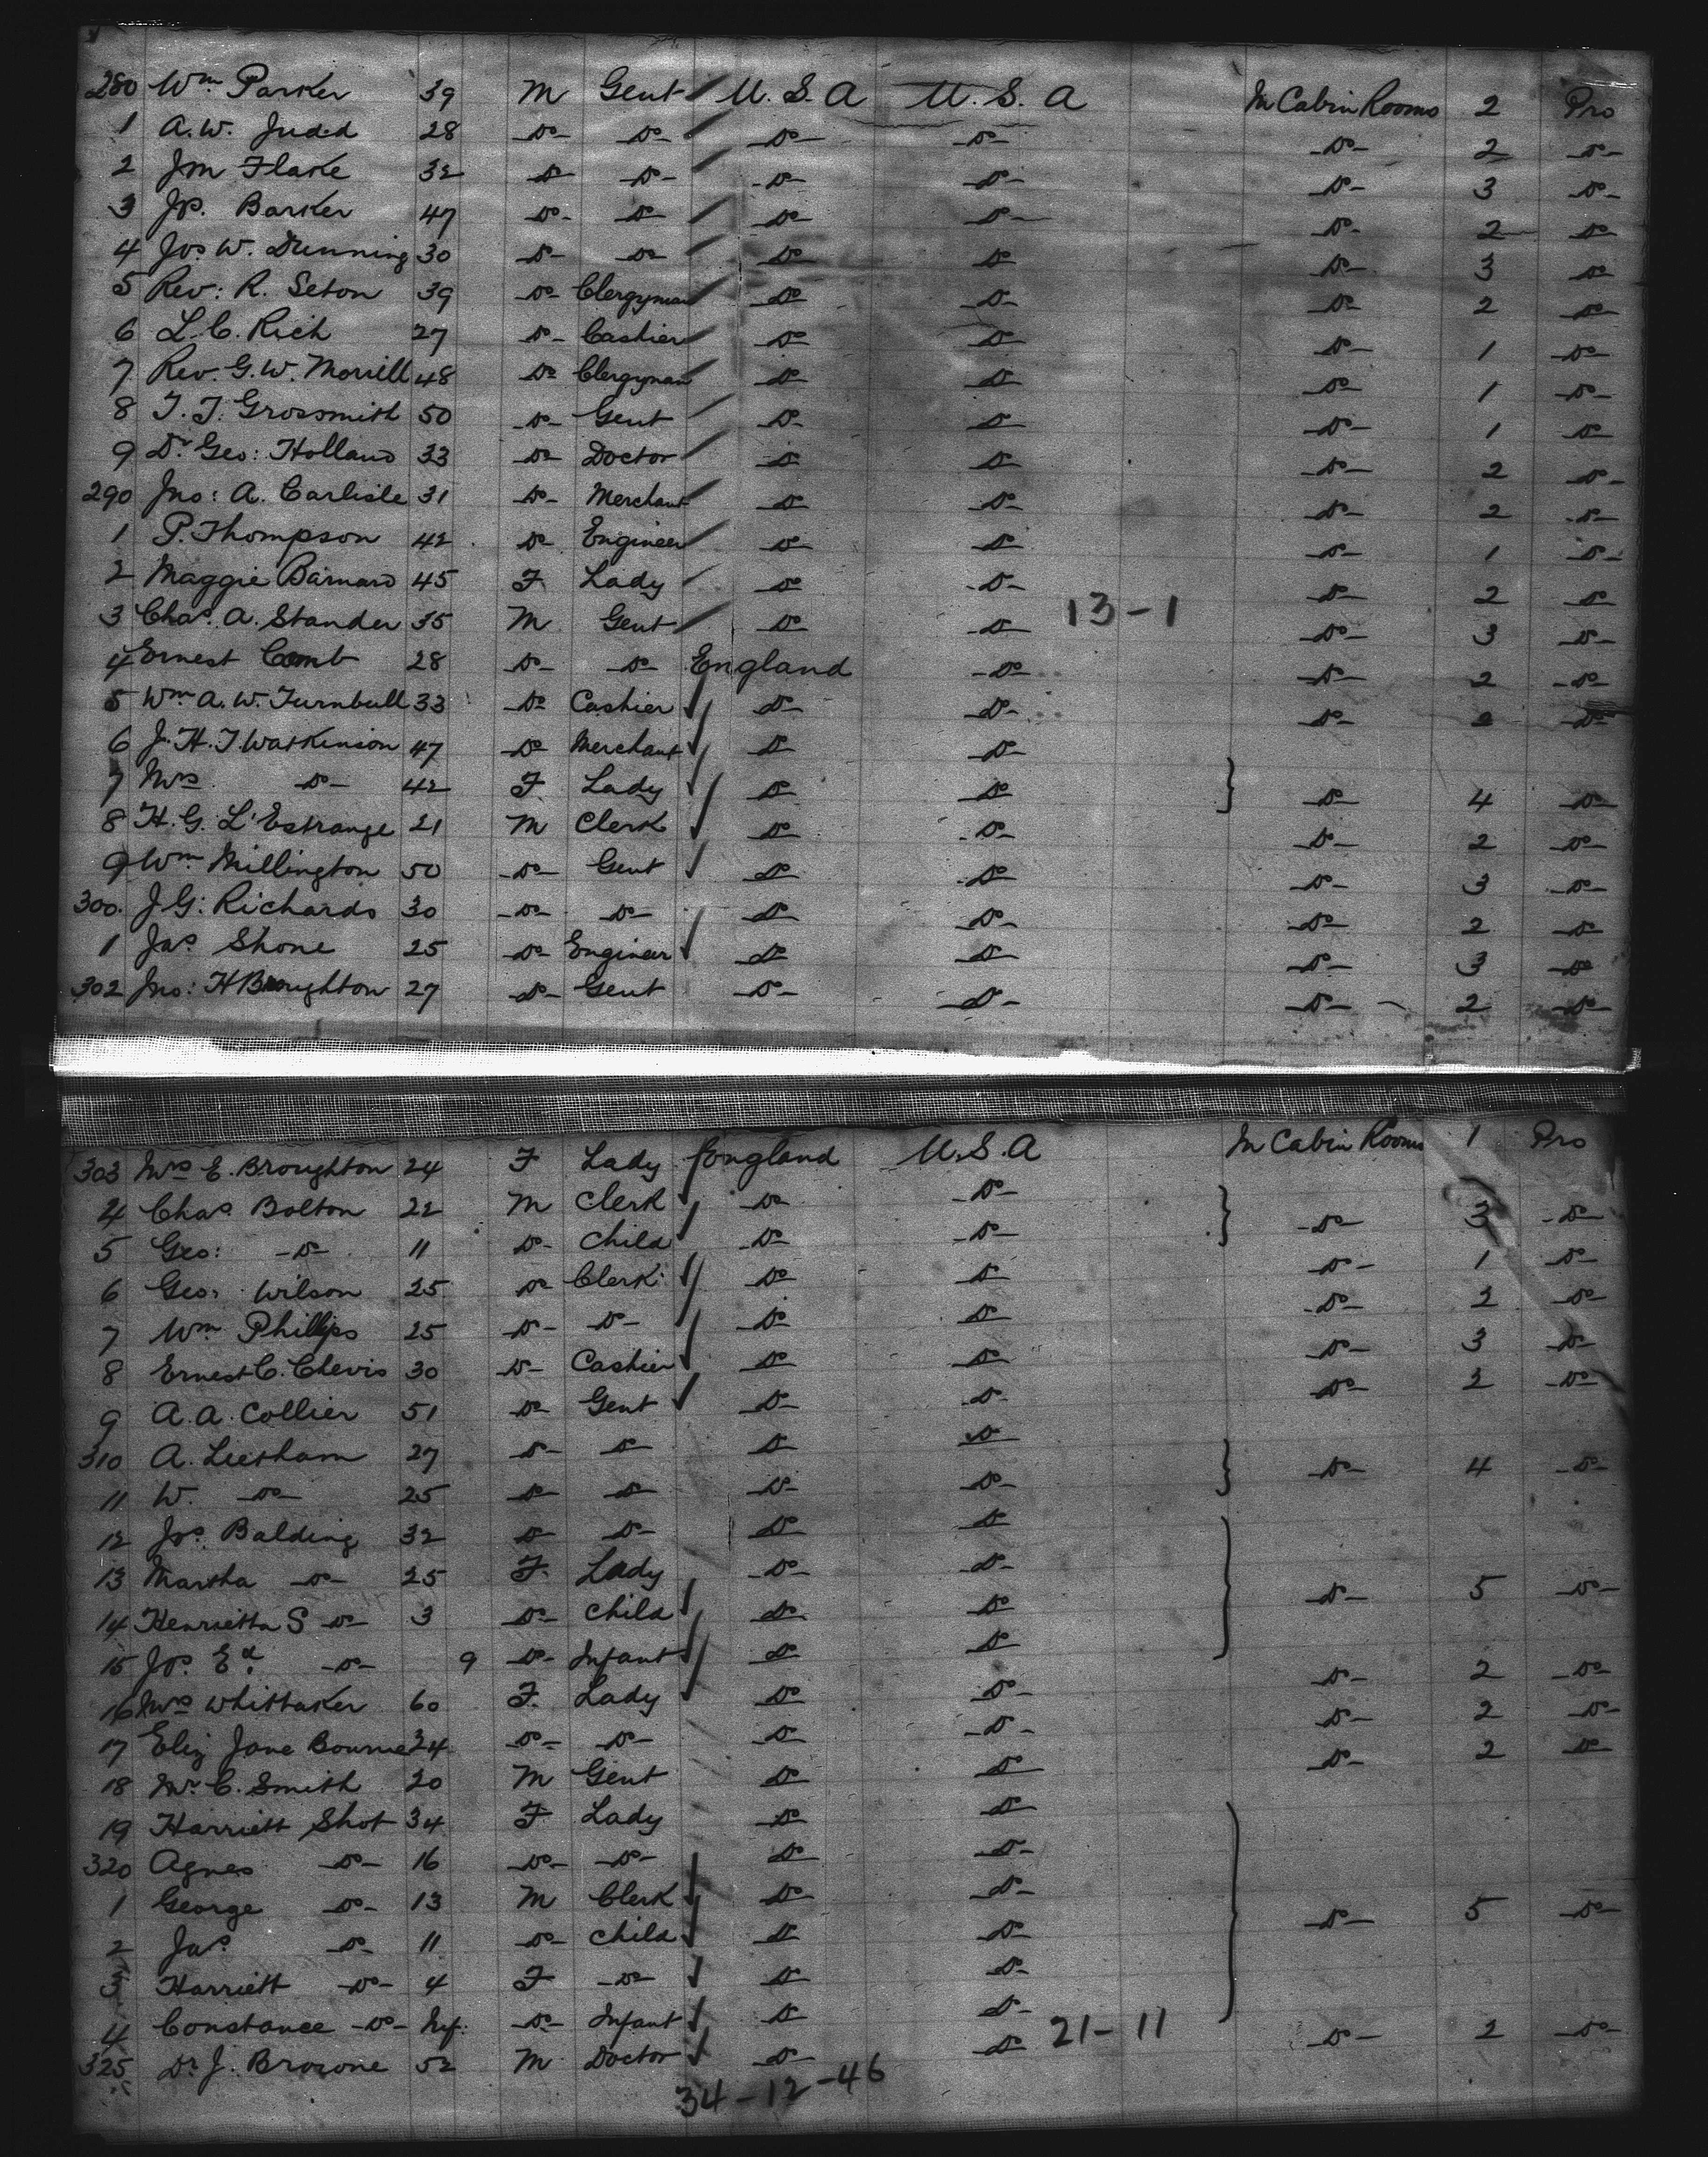 280 Wm Parker 39 M Gent U.S.A U.S.A In Cabin Rooms 2 Pro
1 A.W. Judd 28 Do Do Do Do Do 2 Do
2 Jm Flake 32 Do Do Do Do Do 3 Do
3 Js. Barker 47 Do Do Do Do Do 2 Do
4 Jos W. Dunning 30 Do Do Do Do Do 3 Do
5 Rev: R. Seton 39 Do Clergyman Do Do Do 2 Do
6 L.C. Rich 27 Do Cashier Do Do Do 1 Do
7 Rev. G.W. Morrill 48 Do Clergyman Do Do Do 1 Do
8 T.J. Grossmith 50 Do Gent Do Do Do 1 Do
9 Dr Geo: Holland 33 Do Doctor Do Do Do 2 Do
290 Jno: A. Carlisle 31 Do Merchant Do Do Do 2 Do
1 P. Thompson 42 Do Engineer Do Do Do 1 Do
2 Maggie Barnard 45 F Lady Do Do Do 2 Do
3 Chas. A. Stander 35 M Gent Do Do 13-1 Do 3 Do
4 Ernest Comb 28 Do Do England Do Do 2 Do
5 Wm A.W. Turnbull 33 Do Cashier Do Do Do 2 Do
6 J.H.T. Watkinson 47 Do Merchant Do Do
7 Mrs Do 42 F Lady Do Do } Do 4 Do
8 H.G. L'Estrange 21 M Clerk Do Do Do 2 Do
9 Wm Millington 50 Do Gent Do Do Do 3 Do
300. J.G. Richards 30 Do Do Do Do Do 2 Do
1 Jas Shone 25 Do Engineer Do Do Do 3 Do
302 Jno: H Broughton 27 Do Gent Do Do Do 2 Do
303 Mrs E. Broughton 24 F Lady England U.S.A In Cabin Rooms 1 Pro
4 Chas. Bolton 22 M Clerk Do Do } Do 3 Do
5 Geo: Do 11 Do Child Do Do
6 Geo: Wilson 25 Do Clerk Do Do Do 1 Do
7 Wm Phillips 25 Do Do Do Do Do 2 Do
8 Ernest C. Chevis 30 Do Cashier Do Do Do 3 Do
9 A.A. Collier 51 Do Gent Do Do Do 2 Do
310 A. Leesham 27 Do Do Do Do } Do 4 Do
11 W. Do 25 Do Do Do Do
12 Jos. Balding 32 Do Do Do Do
13 Martha Do 25 F. Lady Do Do } Do 5 Do
14 Henrietta S Do 3 Do Child Do Do
15 Js. Ed. Do 9 Do Infant Do Do
16 Mrs Whittaker 60 F. Lady Do Do Do 2 Do
17 Eliz Jane Bourne 24 Do Do Do Do Do 2 Do
18 Mr C. Smith 20 M Gent Do Do Do 2 Do
19 Harriett Shot 34 F Lady Do Do
320 Agnes Do 16 Do Do Do Do
1 George Do 13 M Clerk Do Do } Do 5 Do
2 Jas Do 11 Do Child Do Do
3 Harriett Do 4 F Do Do Do
4 Constance Do Inf. Do Infant Do Do
325 Dr J. Browne 52 M Doctor Do Do 21-11 Do 2 Do
34-12-46